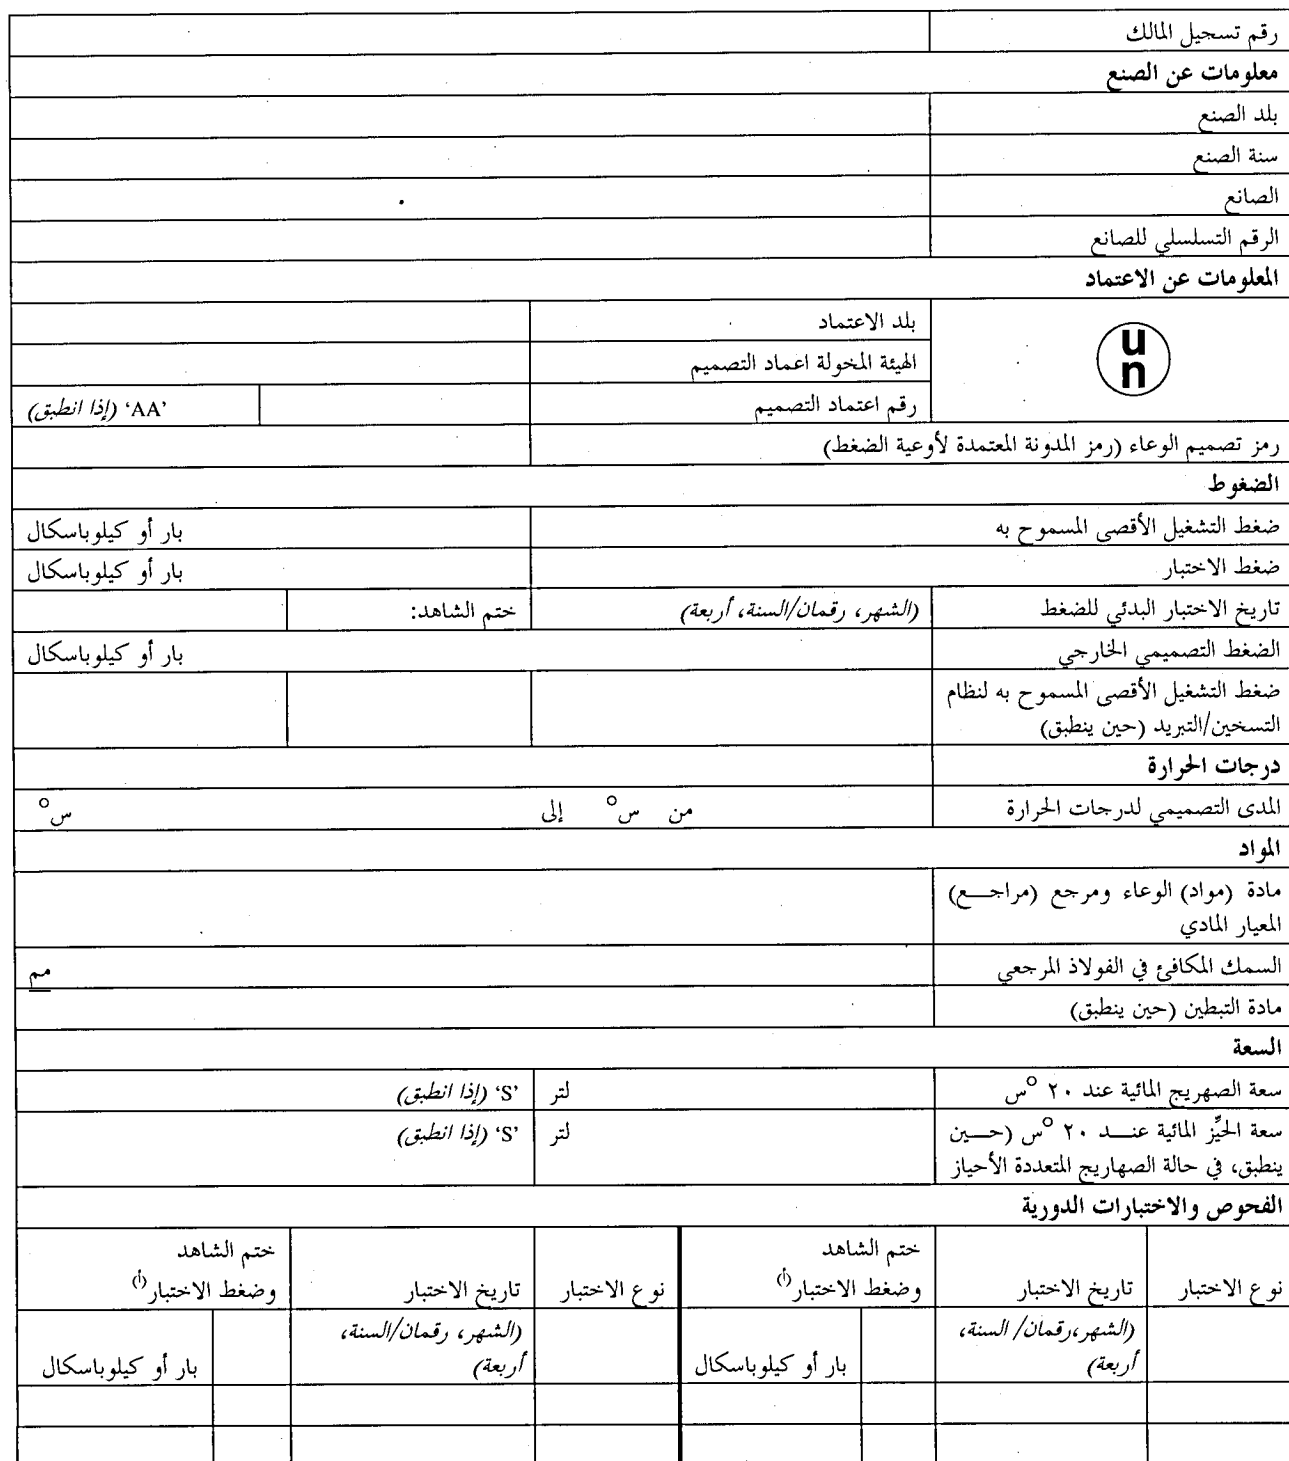 رقم تسجيل المالك
معلومات عن الصنع
بلد الصنع
سنة الصنع
الصانع
الرقم التسلسلي للصانع
المعلومات عن الاعتماد
un
بلد الاعتماد
الهيئة المخولة اعماد التصميم
رقم اعتماد التصميم
'AA' (إذا انطبق)
رمز تصميم الوعاء (رمز المدونة المعتمدة لأوعية الضغط)
الضغوط
ضغط التشغيل الأقصى المسموح به
بار أو كيلوباسكال
ضغط الاختبار
بار أو كيلوباسكال
تاريخ الاختبار البدئي للضغط
(الشهر، رقمان/السنة، أربعة)
ختم الشاهد:
الضغط التصميمي الخارجي
بار أو كيلوباسكال
ضغط التشغيل الأقصى المسموح به لنظام
التسخين/التبريد (حين ينطبق)
درجات الحرارة
المدى التصميمي لدرجات الحرارة
من س° إلى س°
المواد
مادة (مواد) الوعاء ومرجع (مراجــع)
المعيار المادي
السمك المكافئ في الفولاذ المرجعي
مم
مادة التبطين (حين ينطبق)
السعة
سعة الصهريج المائية عند ٢٠ °س
لتر
'S' (إذا انطبق)
سعة الحيِّز المائية عنــد ٢٠ °س (حــين
ينطبق، في حالة الصهاريج المتعددة الأحياز
لتر
'S' (إذا انطبق)
الفحوص والاختبارات الدورية
نوع الاختبار
تاريخ الاختبار
ختم الشاهد
وضغط الاختبار(أ)
نوع الاختبار
تاريخ الاختبار
ختم الشاهد
وضغط الاختبار(أ)
(الشهر،رقمان/ السنة،
أربعة)
بار أو كيلوباسكال
(الشهر، رقمان/السنة،
أربعة)
بار أو كيلوباسكال